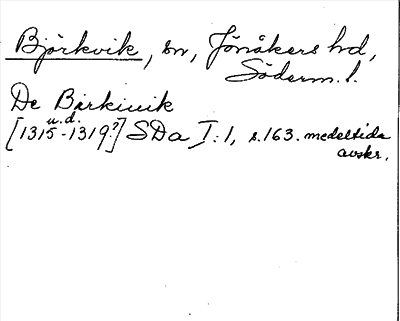 Björkvik, sn, Jönåkers hd,
Söderm. l.
De Birkiuik
u.d.
[1315-1319?] SDa I:1, s.163. medeltida
avskr.